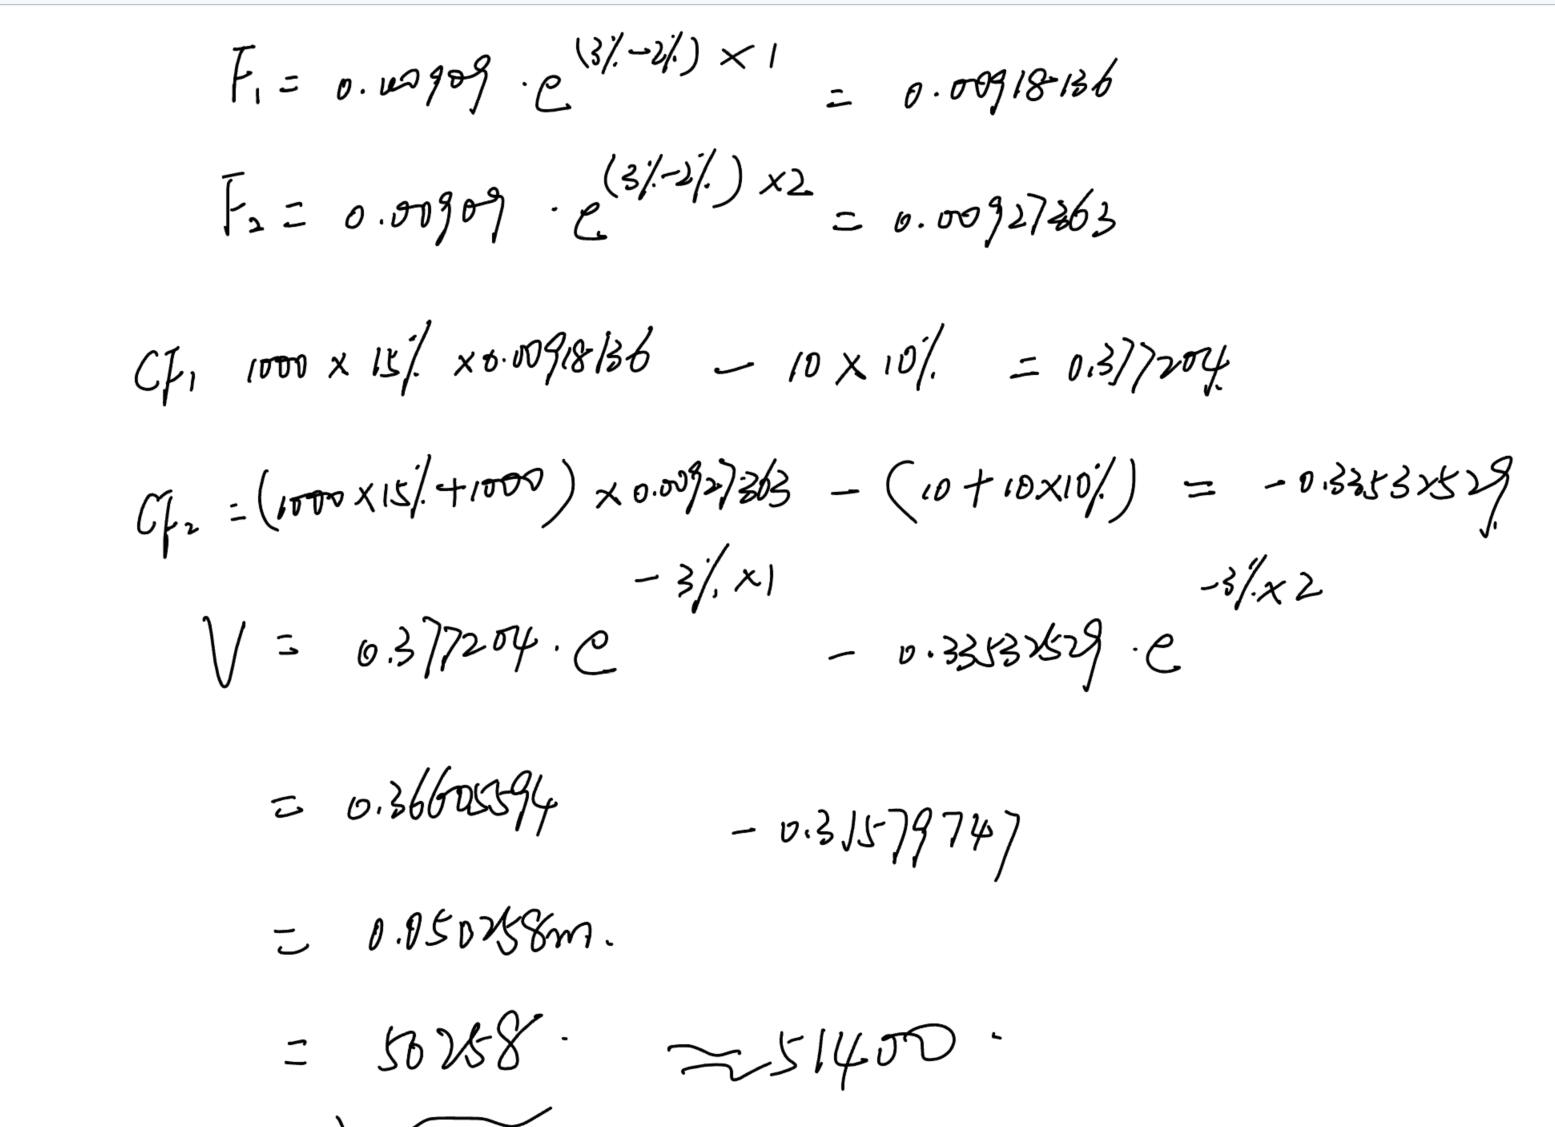 F₁ = 0.00909 · e^(3%-2%)×1 = 0.00918136
F₂ = 0.00909 · e^(3%-2%)×2 = 0.00927363
CF₁ 1000 × 15% × 0.00918136 - 10 × 10% = 0.377204
CF₂ = (1000×15%+1000) × 0.00927363 - (10+10×10%) = -0.33532529
V = 0.377204 · e^-3%×1 - 0.33532529 · e^-3%×2
= 0.36605594 - 0.31579747
= 0.050258m.
= 50258 · ≈ 51400 ·